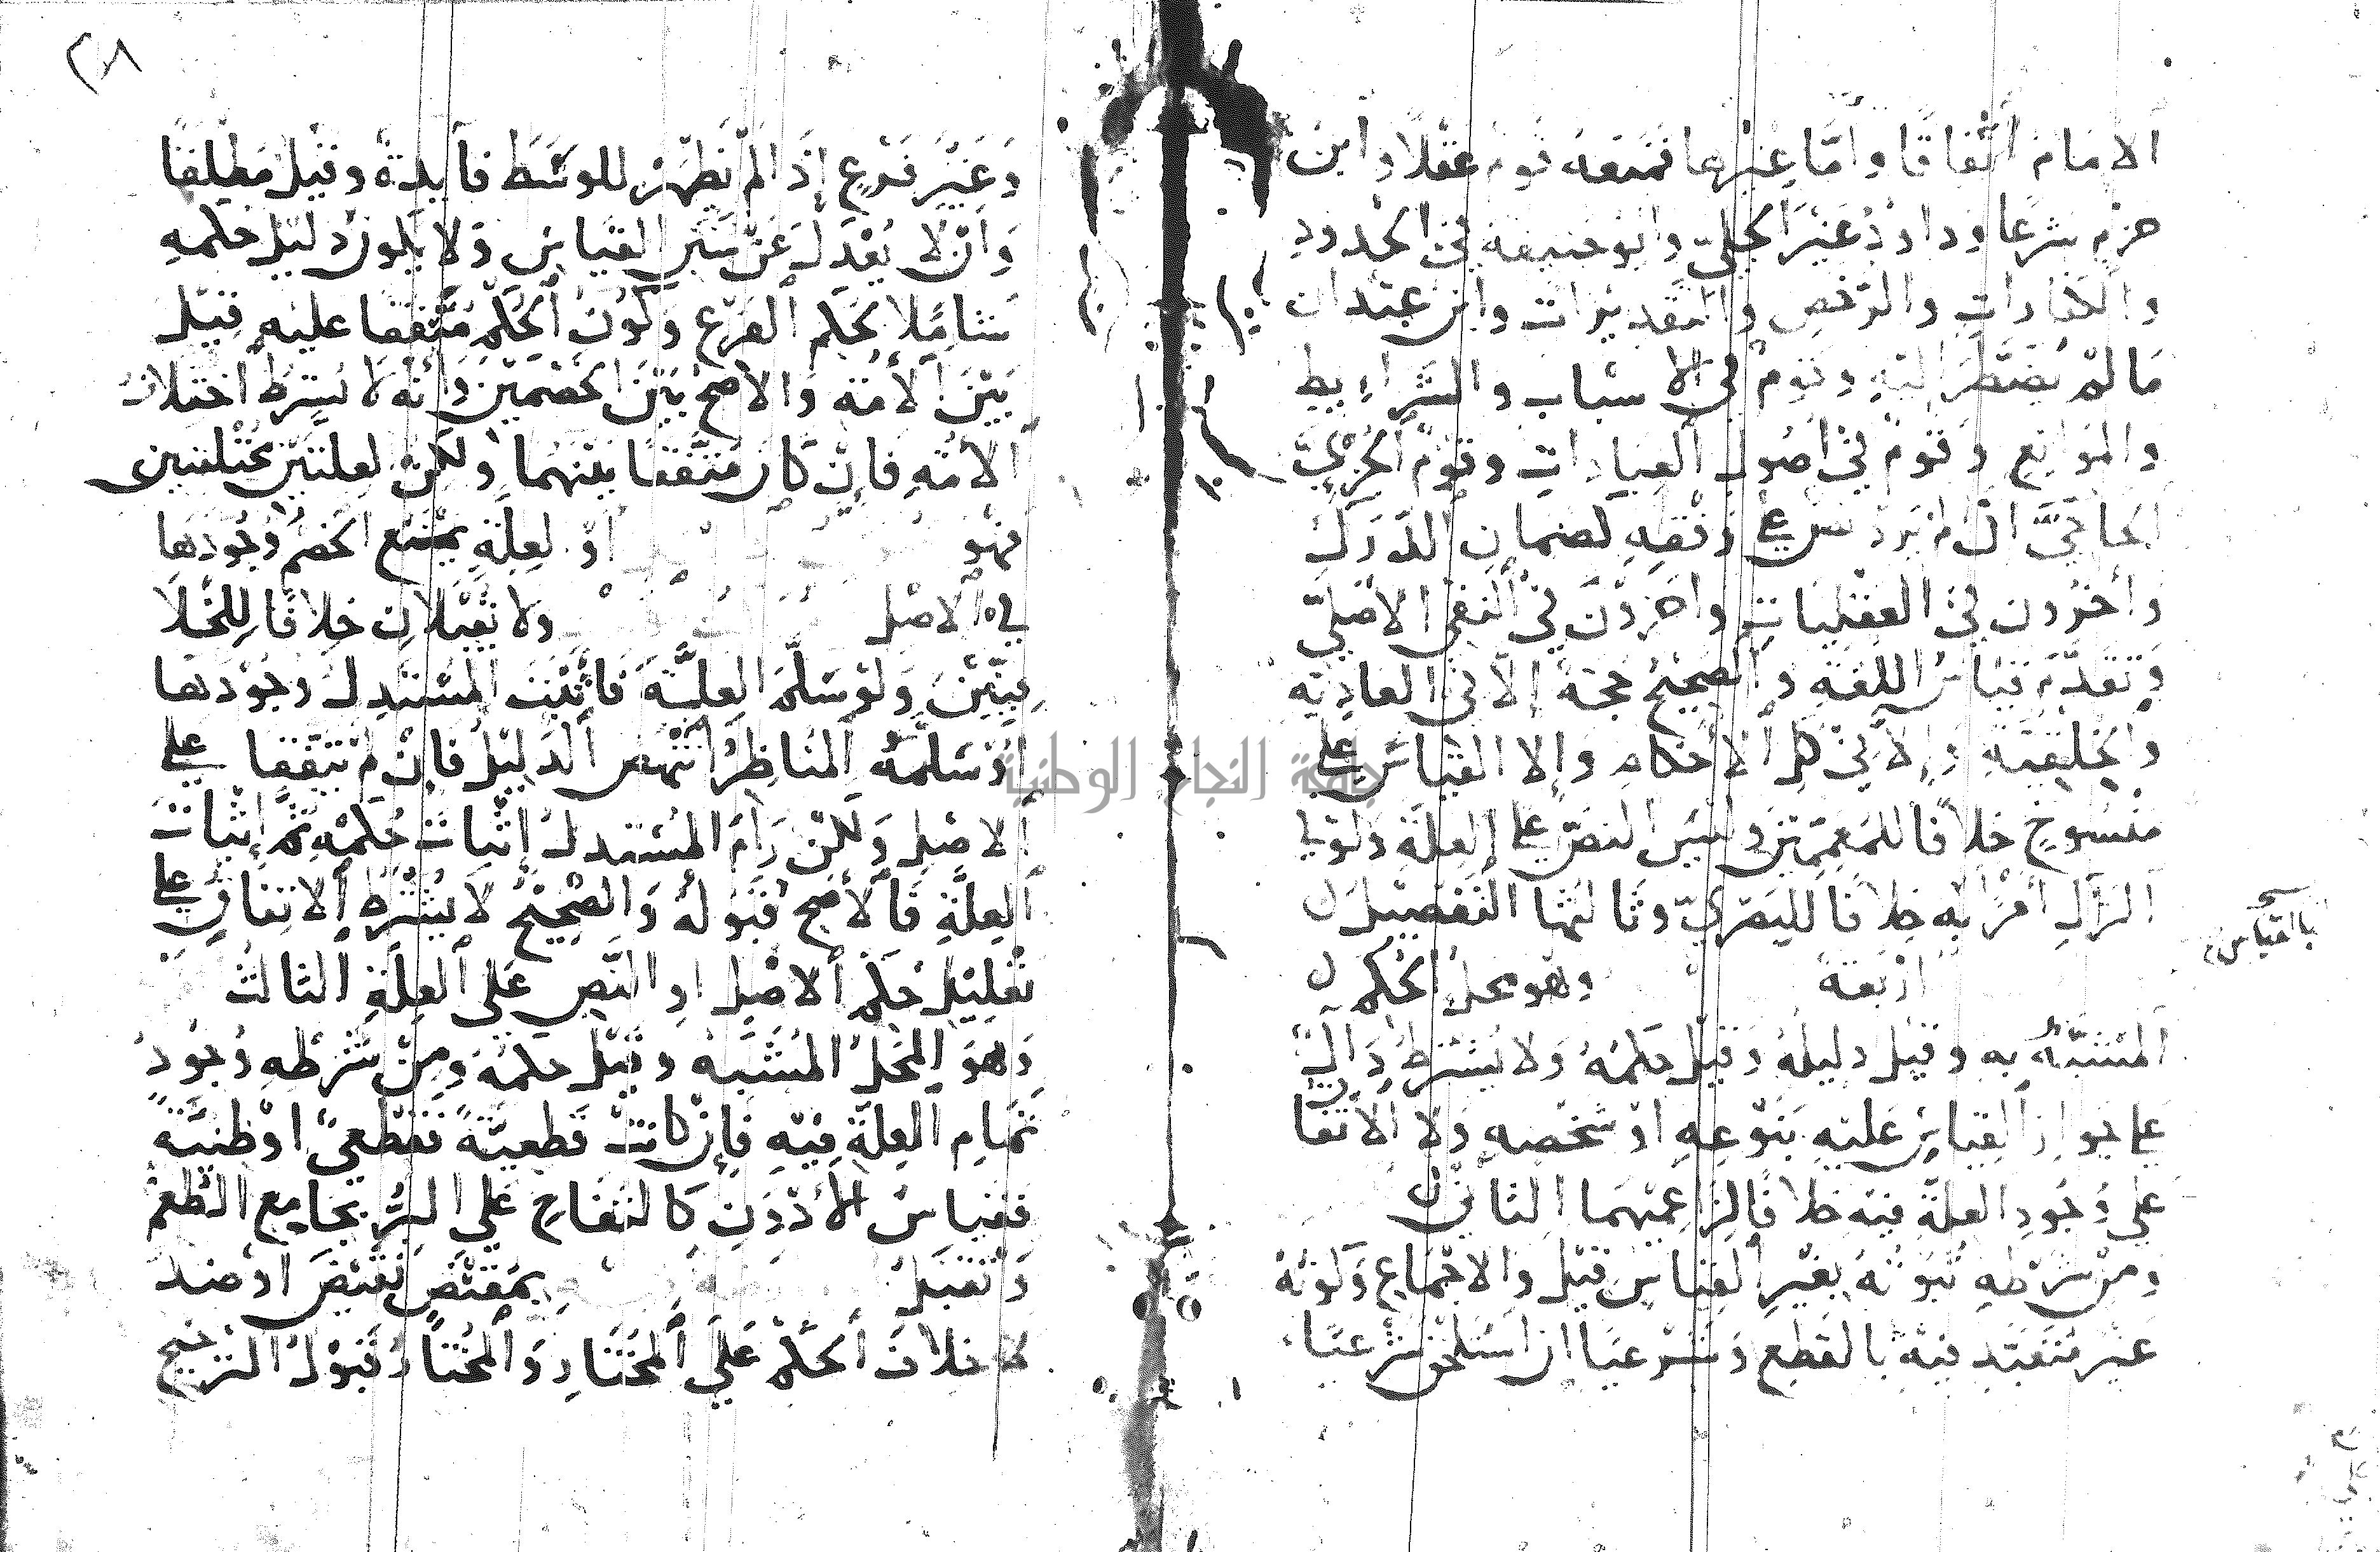 الامام اتفاقا واما غيرها فمنعه قوم عقلا وابن
حزم شرعا وداود غير الجلي وابو حنيفة في الحدود
والكفارات والرخص والتقديرات وابن عبدان
مالم يضطر اليه وقوم في الاسباب والشرايط
والموانع وقوم في اصول العبادات وقوم الجزيي
الحاجي اذا لم يرد نص على وفقه كضمان الدرك
واخرون في العقليات واخرون في النفي الاصلي
وتقدم قياس اللغة والصحيح حجة إلا في العادية
والخلقية وإلا في كل الاحكام وإلا القياس على
منسوخ خلافا للمعممين وليس النص على العلة ولو في
الترك امرا به خلافا للبصري وثالثها التفصيل
بالقياس
اربعة وهو محل الحكم
المشبه به وقيل دليله وقيل حكمه ولا يشترط دال
على جواز القياس عليه بنوعه او شخصه ولا الاتفا
على وجود العلة فيه خلافا لزاعميهما الثاني
ومن شرطه ثبوته بغير القياس قيل والاجماع وكونه
غير متعبد فيه بالقطع وشرعيا ان استلحق شرعيا
٢٨
وغير فرع إذا لم يظهر للوسط فايدة وقيل مطلقا
وان لا يعدل عن سنن القياس ولا يكون دليل حكمه
شاملا لحكم الفرع وكون الحكم متفقا عليه قيل
بين الأمة والاصح بين الخصمين وانه لا يشترط اختلاف
الامة فإن كان متفقا بينهما ولكن لعلتين مختلفتين
فهو او لعلة يمنع الخصم وجودها
في الاصل ولا يقبلان خلافا للخلا
فيين ولو سلم العلة فاثبت المستدل وجودها
او سلمه المناظر انتهض الدليل فإن لم يتفقا على
الاصل ولكن رام المستدل إثبات حكمه ثم إثبات
العلة فالأصح قبوله والصحيح لا يشترط الاتفاق على
تعليل حكم الاصل او النص على العلة الثالث
وهو المحل المشبه وقيل حكمه ومن شرطه وجود
تمام العلة فيه فإن كانت قطعية فقطعي او ظنية
فقياس الأدون كالتفاح على البر بجامع الطعم
وتقبل بمقتض نقيض او ضد
لا خلاف الحكم على المختار والمختار قبول الترجيح
جامعة النجاح الوطنية